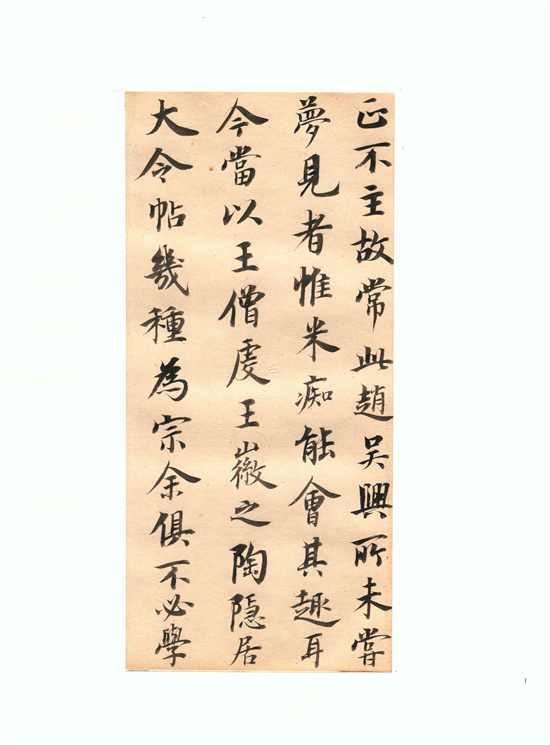 正不主故常此趙吳興所未嘗
夢見者惟米痴能會其趣耳
今當以王僧虔王徽之陶隱居
大令帖幾種為宗余俱不必學